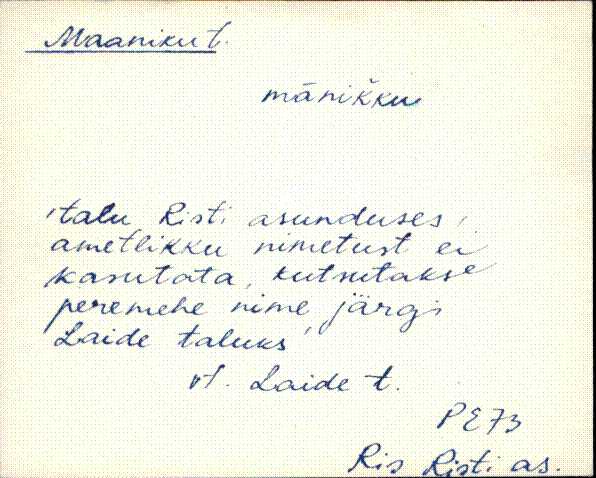 Maaniku t.
mānikku
'talu Risti asunduses,
ametlikku nimetust ei
kasutata, kutsutakse
peremehe nime järgi
Laide taluks'
vt. Laide t.
PE73
Ris Risti as.